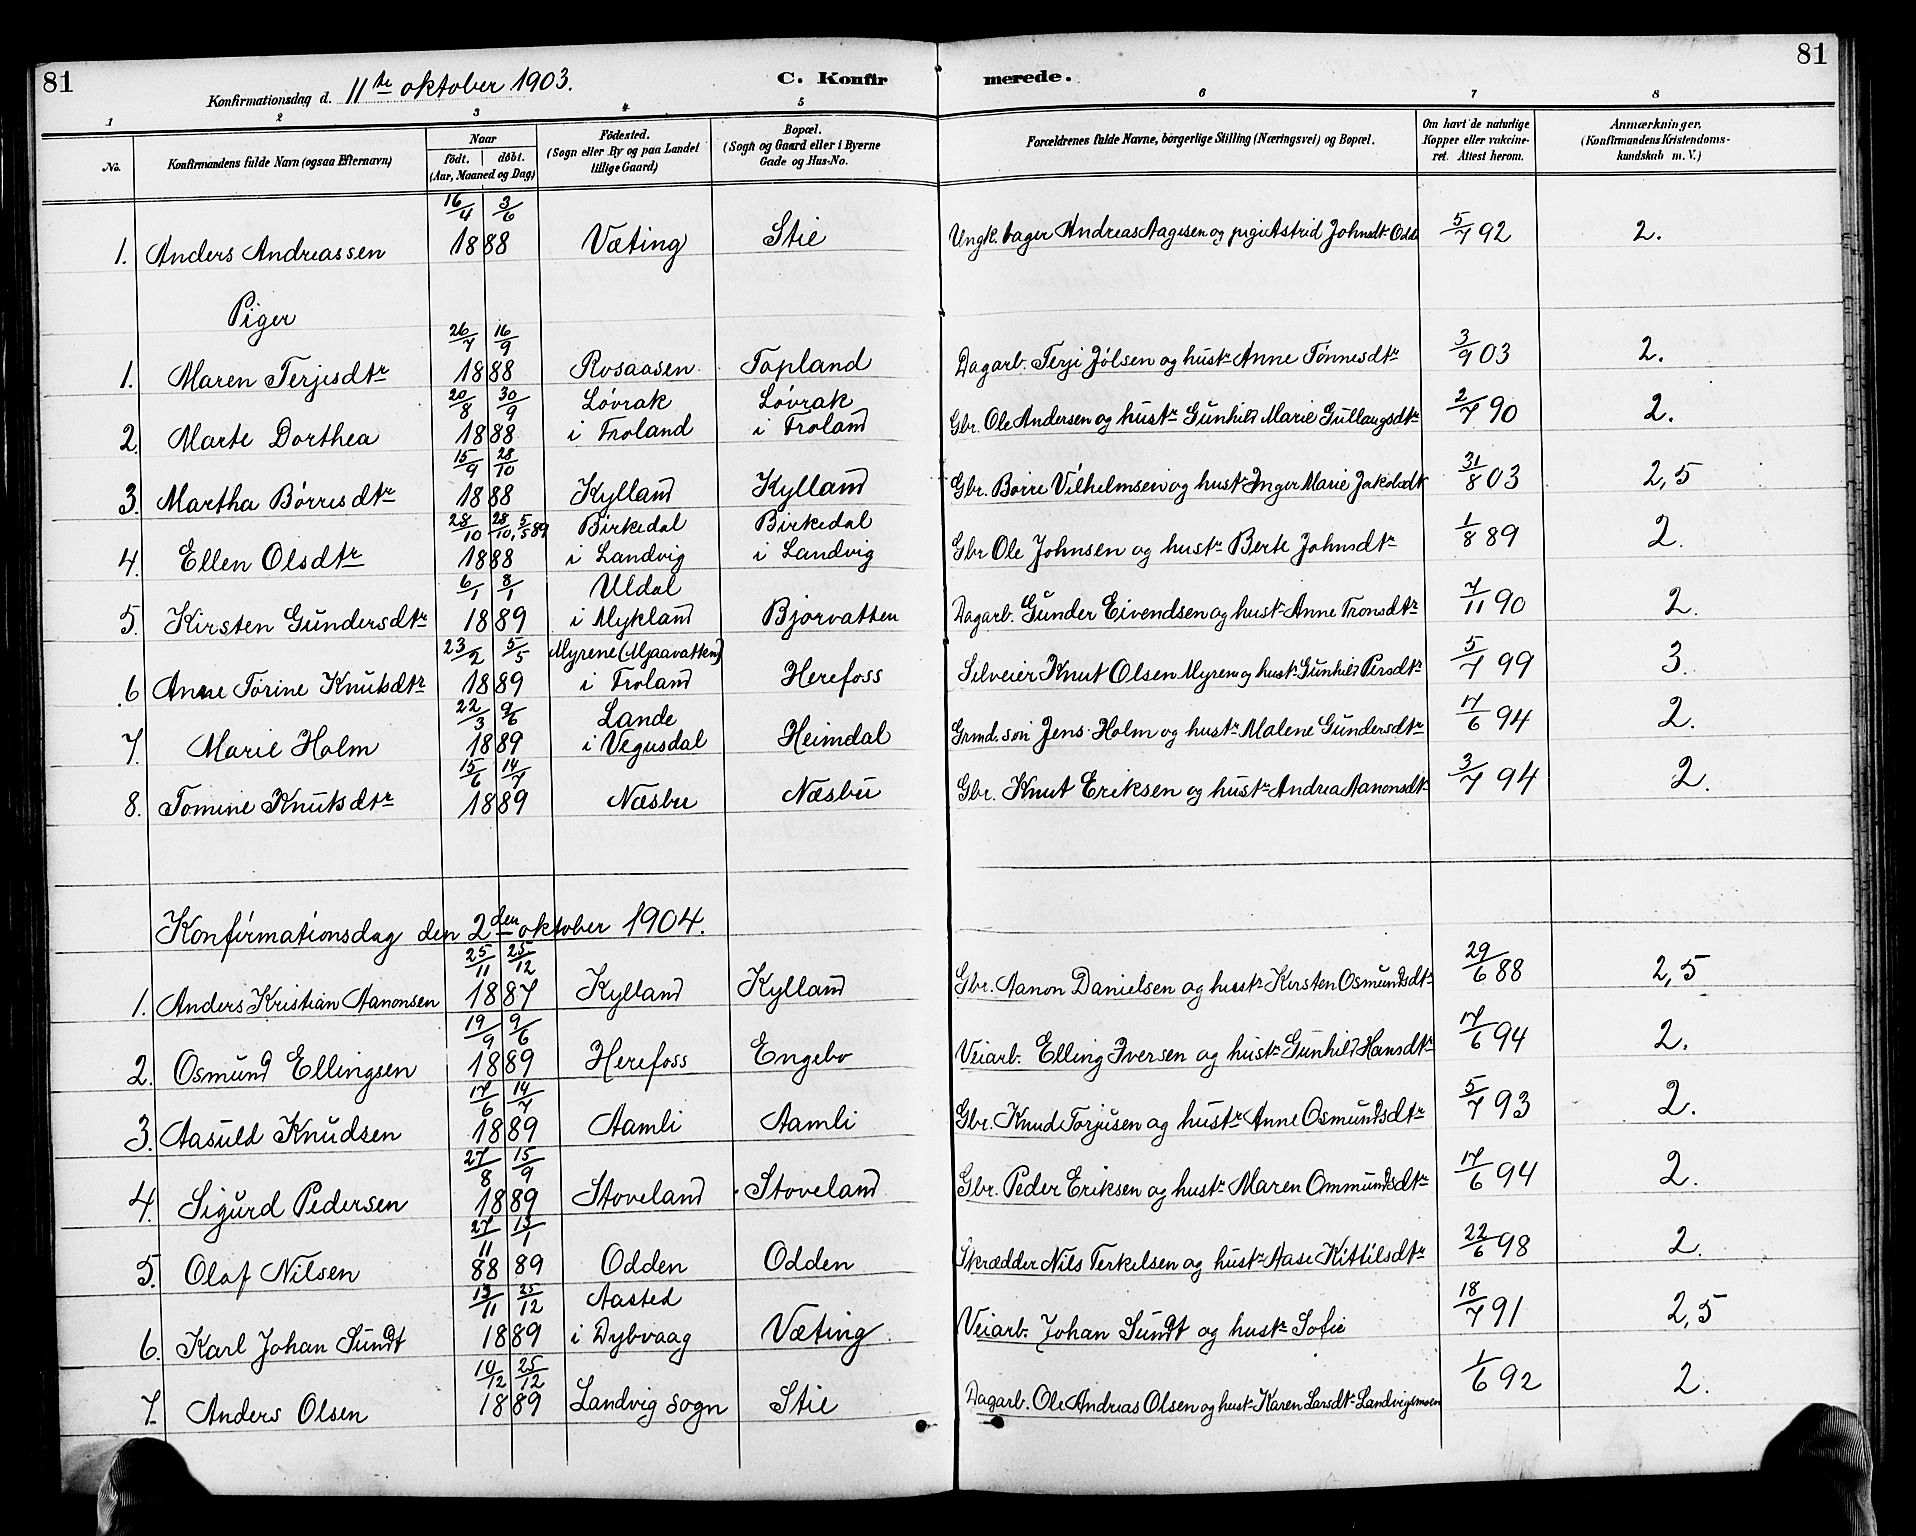 81
81
Konfirmationsdag d. 11te oktober 1903.
C. Konfir
merede.
1 2 3 4 5 6 7 8
No.
Konfirmandens fulde Navn (ogsaa Efternavn)
Naar
födt. döbt.
(Aar, Maaned og Dag)
Födested.
(Sogn eller By og paa Landet
tillige Gaard)
Bopæl.
(Sogn og Gaard eller i Byerne
Gade og Hus-No.
Forældrenes fulde Navne, borgerlige Stilling (Næringsvei) og Bopæl.
Om havt de naturlige
Kopper eller vakcine-
ret. Attest herom.
Anmærkninger,
(Konfirmandens Kristendoms-
kundskab m. V.)
16/4 3/6
1. Anders Andreassen 1888 Væting Stie Ungk. bager Andreas Aagesen og pige Astrid Johnsdtr Odde 5/7 92 2.
Piger
26/7 16/9
1. Maren Terjesdtr 1888 Rosaasen Topland Dagarb. Terje Jølsen og hustr Anne Tønnesdtr 3/9 03 2.
20/8 30/9 Løvrak Løvrak
2. Marte Dorthea 1888 i Froland i Froland Gbr. Ole Andersen og hustr Gunhild Marie Gullaugsdtr 2/7 90 2.
15/9 28/10
3. Martha Børresdtr 1888 Kylland Kylland Gbr. Børre Vilhelmsen og hustr Inger Marie Jakobsdtr 31/8 03 2,5
28/10 28/10, 5/5 89 Birkedal Birkedal
4. Ellen Olsdtr 1888 i Landvig i Landvig Gbr Ole Johnsen og hustr Berte Johnsdtr 1/8 89 2.
6/1 8/1 Uldal
5. Kirsten Gundersdtr 1889 i Mykland Bjorvatten Dagarb. Gunder Eivendsen og hustr Anne Tronsdtr 7/11 90 2.
23/2 5/5 Myrene (Mjaavatten)
6 Anne Torine Knutsdtr 1889 i Froland Herefoss Selveier Knut Olsen Myrem og hustr Gunhild Persdtr 5/7 99 3.
22/3 9/6 Lande
7. Marie Holm 1889 i Vegusdal Heimdal Grmd. søn Jens Holm og hustr Malene Gundersdtr 17/6 94 2.
15/6 14/7
8. Tomine Knutsdtr 1889 Næsbu Næsbu Gbr. Knut Eriksen og hustr Andrea Aanonsdtr 3/7 94 2.
Konfirmationsdag den 2den oktober 1904.
25/11 25/12
1. Anders Kristian Aanonsen 1887 Kylland Kylland Gbr. Aanon Danielsen og hustr Kirsten Osmundsdtr 29/6 88 2,5
19/9 9/6
2. Osmund Ellingsen 1889 Herefoss Engebo Veiarb. Elling Iversen og hustr Gunhild Hansdtr 17/6 94 2.
17/6 14/7
3. Aasuld Knudsen 1889 Aamli Aamli Gbr. Knud Torjusen og hustr Anne Osmundsdtr 5/7 93 2.
27/8 15/9
4. Sigurd Pedersen 1889 Stoveland Stoveland Gbr. Peder Eriksen og hustr Maren Ommundsdtr 17/6 94 2.
27/11 13/1
5. Olaf Nilsen 88 89 Odden Odden Skrædder Nils Terkelsen og hustr Aase Kittilsdtr 22/6 98 2.
13/11 25/12 Aasted
6. Karl Johan Sundt 1889 i Dybvaag Væting Veiarb. Johan Sundt og hustr Sofie 18/7 91 2,5
10/12 25/12
7. Anders Olsen 1889 Landvig sogn Stie Dagarb. Ole Andreas Olsen og hustr Karen Larsdtr Landvigsmoen 1/6 92 2.